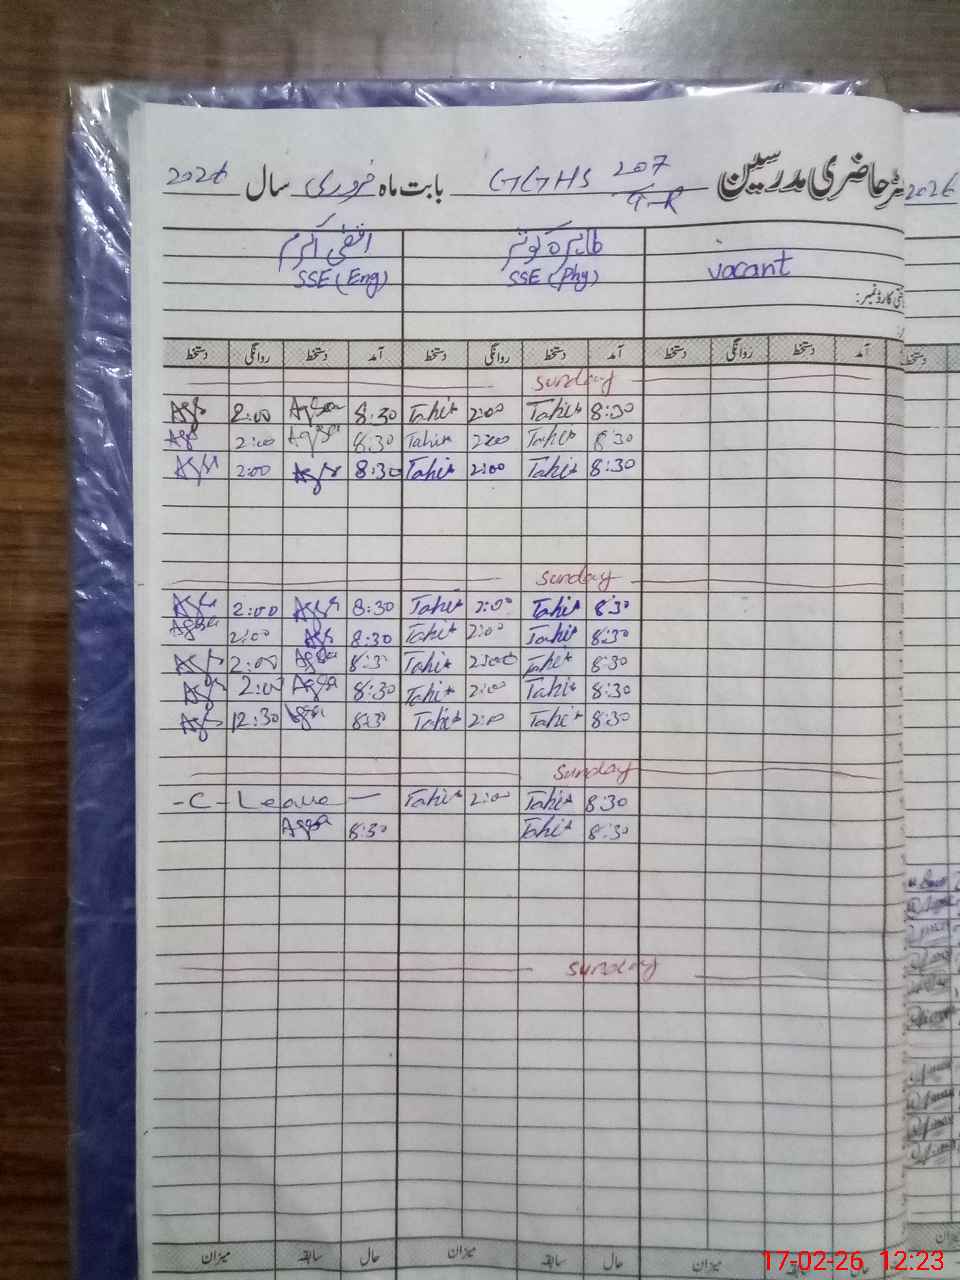 حاضری مدرسین GGHS 207 G-R بابت ماہ فروری سال 2026
2026
اقصٰی اکرم طاہرہ کوثر
SSE (Eng) SSE (Phy) vacant
دستخط روانگی دستخط آمد دستخط روانگی دستخط آمد دستخط روانگی دستخط آمد
Sunday
2:00 Aqsa 8:30 Tahir 2:00 Tahir 8:30
2:00 Aqsa 8:30 Tahir 2:00 Tahir 8:30
2:00 8:30 Tahir 2:00 Tahir 8:30
Sunday
2:00 Aqsa 8:30 Tahir 2:00 Tahir 8:30
Aqsa 2:00 8:30 Tahir 2:00 Tahir 8:30
2:00 Aqsa 8:30 Tahir 2:00 Tahir 8:30
2:00 Aqsa 8:30 Tahir 2:00 Tahir 8:30
12:30 Aqsa 8:30 Tahir 2:00 Tahir 8:30
Sunday
-C- Leave — Tahir 2:00 Tahir 8:30
Aqsa 8:30 Tahir 8:30
Sunday
میزان سابقہ حال میزان سابقہ حال میزان
17-02-26 12:23